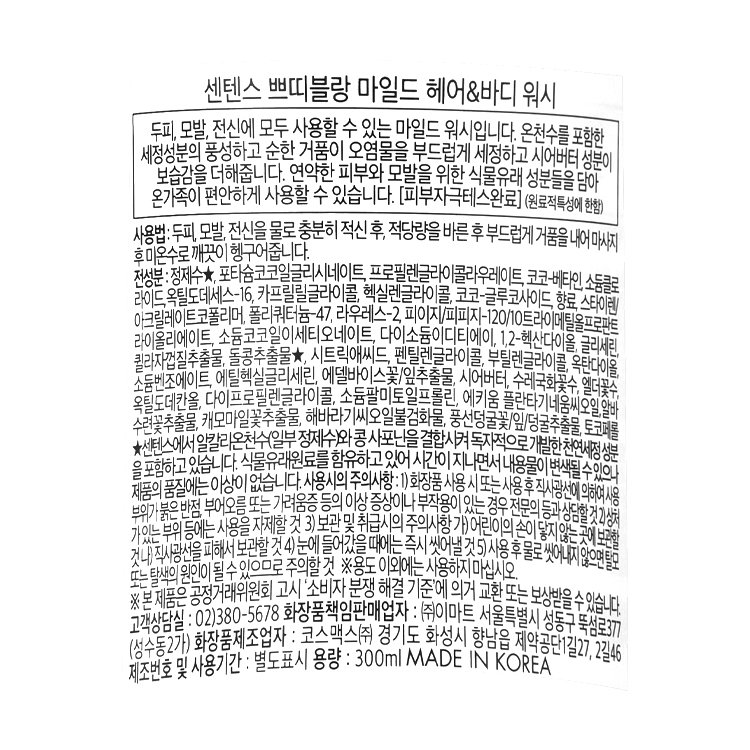 센텐스 쁘띠블랑 마일드 헤어&바디 워시
두피, 모발, 전신에 모두 사용할 수 있는 마일드 워시입니다. 온천수를 포함한
세정성분의 풍성하고 순한 거품이 오염물을 부드럽게 세정하고 시어버터 성분이
보습감을 더해줍니다. 연약한 피부와 모발을 위한 식물유래 성분들을 담아
온가족이 편안하게 사용할 수 있습니다. [피부자극테스완료] (원료적특성에 한함)
사용법 : 두피, 모발, 전신을 물로 충분히 적신 후, 적당량을 바른 후 부드럽게 거품을 내어 마사지
후 미온수로 깨끗이 헹구어줍니다.
전성분 : 정제수★, 포타슘코코일글리시네이트, 프로필렌글라이콜라우레이트, 코코-베타인, 소듐클로
라이드, 옥틸도데세스-16, 카프릴릴글라이콜, 헥실렌글라이콜, 코코-글루코사이드, 향료, 스타이렌/
아크릴레이트코폴리머, 폴리쿼터늄-47, 라우레스-2, 피이지/피피지-120/10트라이메틸올프로판트
라이올리에이트, 소듐코코일이세티오네이트, 다이소듐이디티에이, 1,2-헥산다이올, 글리세린,
퀼라자껍질추출물, 돌콩추출물★, 시트릭애씨드, 펜틸렌글라이콜, 부틸렌글라이콜, 옥탄다이올,
소듐벤조에이트, 에틸헥실글리세린, 에델바이스꽃/잎추출물, 시어버터, 수레국화꽃수, 엘더꽃수,
옥틸도데칸올, 다이프로필렌글라이콜, 소듐팔미토일프롤린, 에키움 플란타기네움씨오일, 알바
수련꽃추출물, 캐모마일꽃추출물, 해바라기씨오일불검화물, 풍선덩굴꽃/잎/덩굴추출물, 토코페롤
★센텐스에서 알칼리온천수(일부 정제수)와 콩 사포닌을 결합시켜 독자적으로 개발한 천연세정 성분
을 포함하고 있습니다. 식물유래원료를 함유하고 있어 시간이 지나면서 내용물이 변색될 수 있으나
제품의 품질에는 이상이 없습니다. 사용시의 주의사항 : 1) 화장품 사용 시 또는 사용 후 직사광선에 의하여 사용
부위가 붉은 반점, 부어오름 또는 가려움증 등의 이상 증상이나 부작용이 있는 경우 전문의 등과 상담할 것 2) 상처
가 있는 부위 등에는 사용을 자제할 것 3) 보관 및 취급시의 주의사항 가) 어린이의 손이 닿지 않는 곳에 보관할
것 나) 직사광선을 피해서 보관할 것 4) 눈에 들어갔을 때에는 즉시 씻어낼 것 5) 사용 후 물로 씻어내지 않으면 탈모
또는 탈색의 원인이 될 수 있으므로 주의할 것 ※용도 이외에는 사용하지 마십시오.
※ 본 제품은 공정거래위원회 고시 '소비자 분쟁 해결 기준'에 의거 교환 또는 보상받을 수 있습니다.
고객상담실 : 02)380-5678 화장품책임판매업자 : ㈜이마트 서울특별시 성동구 뚝섬로377
(성수동2가) 화장품제조업자 : 코스맥스㈜ 경기도 화성시 향남읍 제약공단1길27, 2길46
제조번호 및 사용기간 : 별도표시 용량 : 300ml MADE IN KOREA